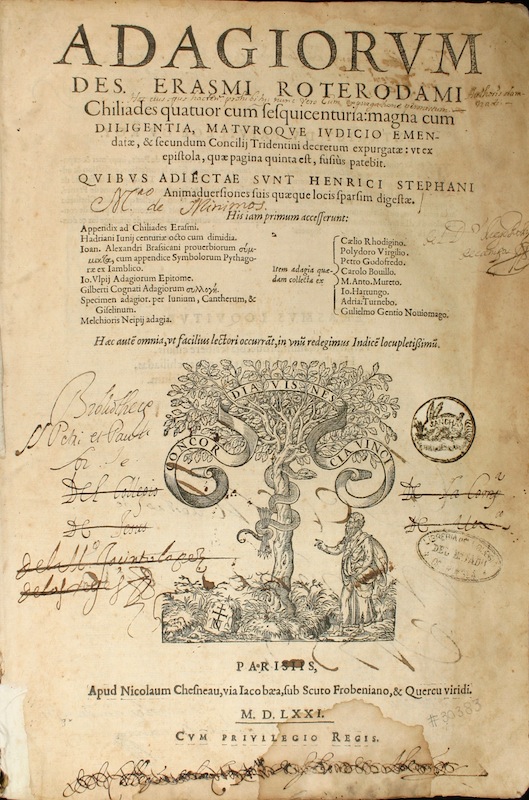 ADAGIORVM
DES. ERASMI ROTERODAMI
Chiliades quatuor cum sesquicenturia: magna cum
DILIGENTIA, MATVROQVE IVDICIO EMEN-
datæ, & secundum Concilij Tridentini decretum expurgatæ: vt ex
epistola, quæ pagina quinta est, fusiùs patebit.
QVIBVS ADIECTAE SVNT HENRICI STEPHANI
Animaduersiones suis quæque locis sparsim digestæ.
de Minimos.
His iam primum accesserunt:
Appendix ad Chiliades Erasmi.
Hadriani Iunij centuriæ octo cum dimidia.
Ioan. Alexandri Brasicani prouerbiorum
cum appendice Symbolorum Pythago-
ræ ex Iamblico.
Io. Vlpij Adagiorum Epitome.
Gilberti Cognati Adagiorum συλλογή.
Specimen adagior. per Iunium, Cantherum, &
Giselinum.
Melchioris Neipij adagia.
Item adagia quæ-
dam collecta ex
Cælio Rhodigino.
Polydoro Virgilio.
Petro Godofredo.
Carolo Bouillo.
M. Anto. Mureto.
Io. Hartungo.
Adria. Turnebo.
Gulielmo Gentio Nouiomago.
Hæc autē omnia, vt facilius lectori occurrāt, in vnū redegimus Indicē locupletißimū.
CONCOR
DIA VIS NES
CIA VINCI
Del Collegio
de Jesus
PARISIIS,
Apud Nicolaum Chesneau, via Iacobæa, sub Scuto Frobeniano, & Quercu viridi.
M. D. LXXI.
CVM PRIVILEGIO REGIS.
#30383